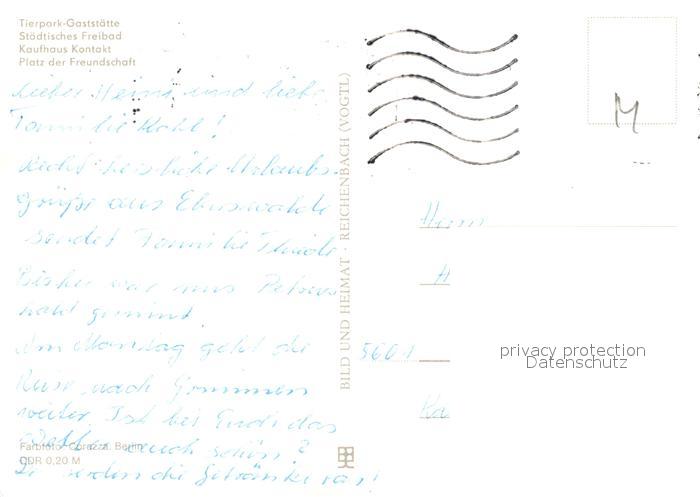 Tierpark-Gaststätte
Städtisches Freibad
Kaufhaus Kontakt
Platz der Freundschaft
Lieber Heinz und liebe
Familie Kohl!
Recht herzliche Urlaubs-
Grüße aus Eberswalde
sendet Familie
Bisher war uns Petrus
hold gesinnt
Am Montag geht die
Reise nach Grimmen
weiter. Ist bei Euch das
Wetter auch schön?
werden die Getränke
Farbfoto: Corazza, Berlin
DDR 0,20 M
BILD UND HEIMAT · REICHENBACH (VOGTL)
M
Herrn
H
5601
Ka
privacy protection
Datenschutz